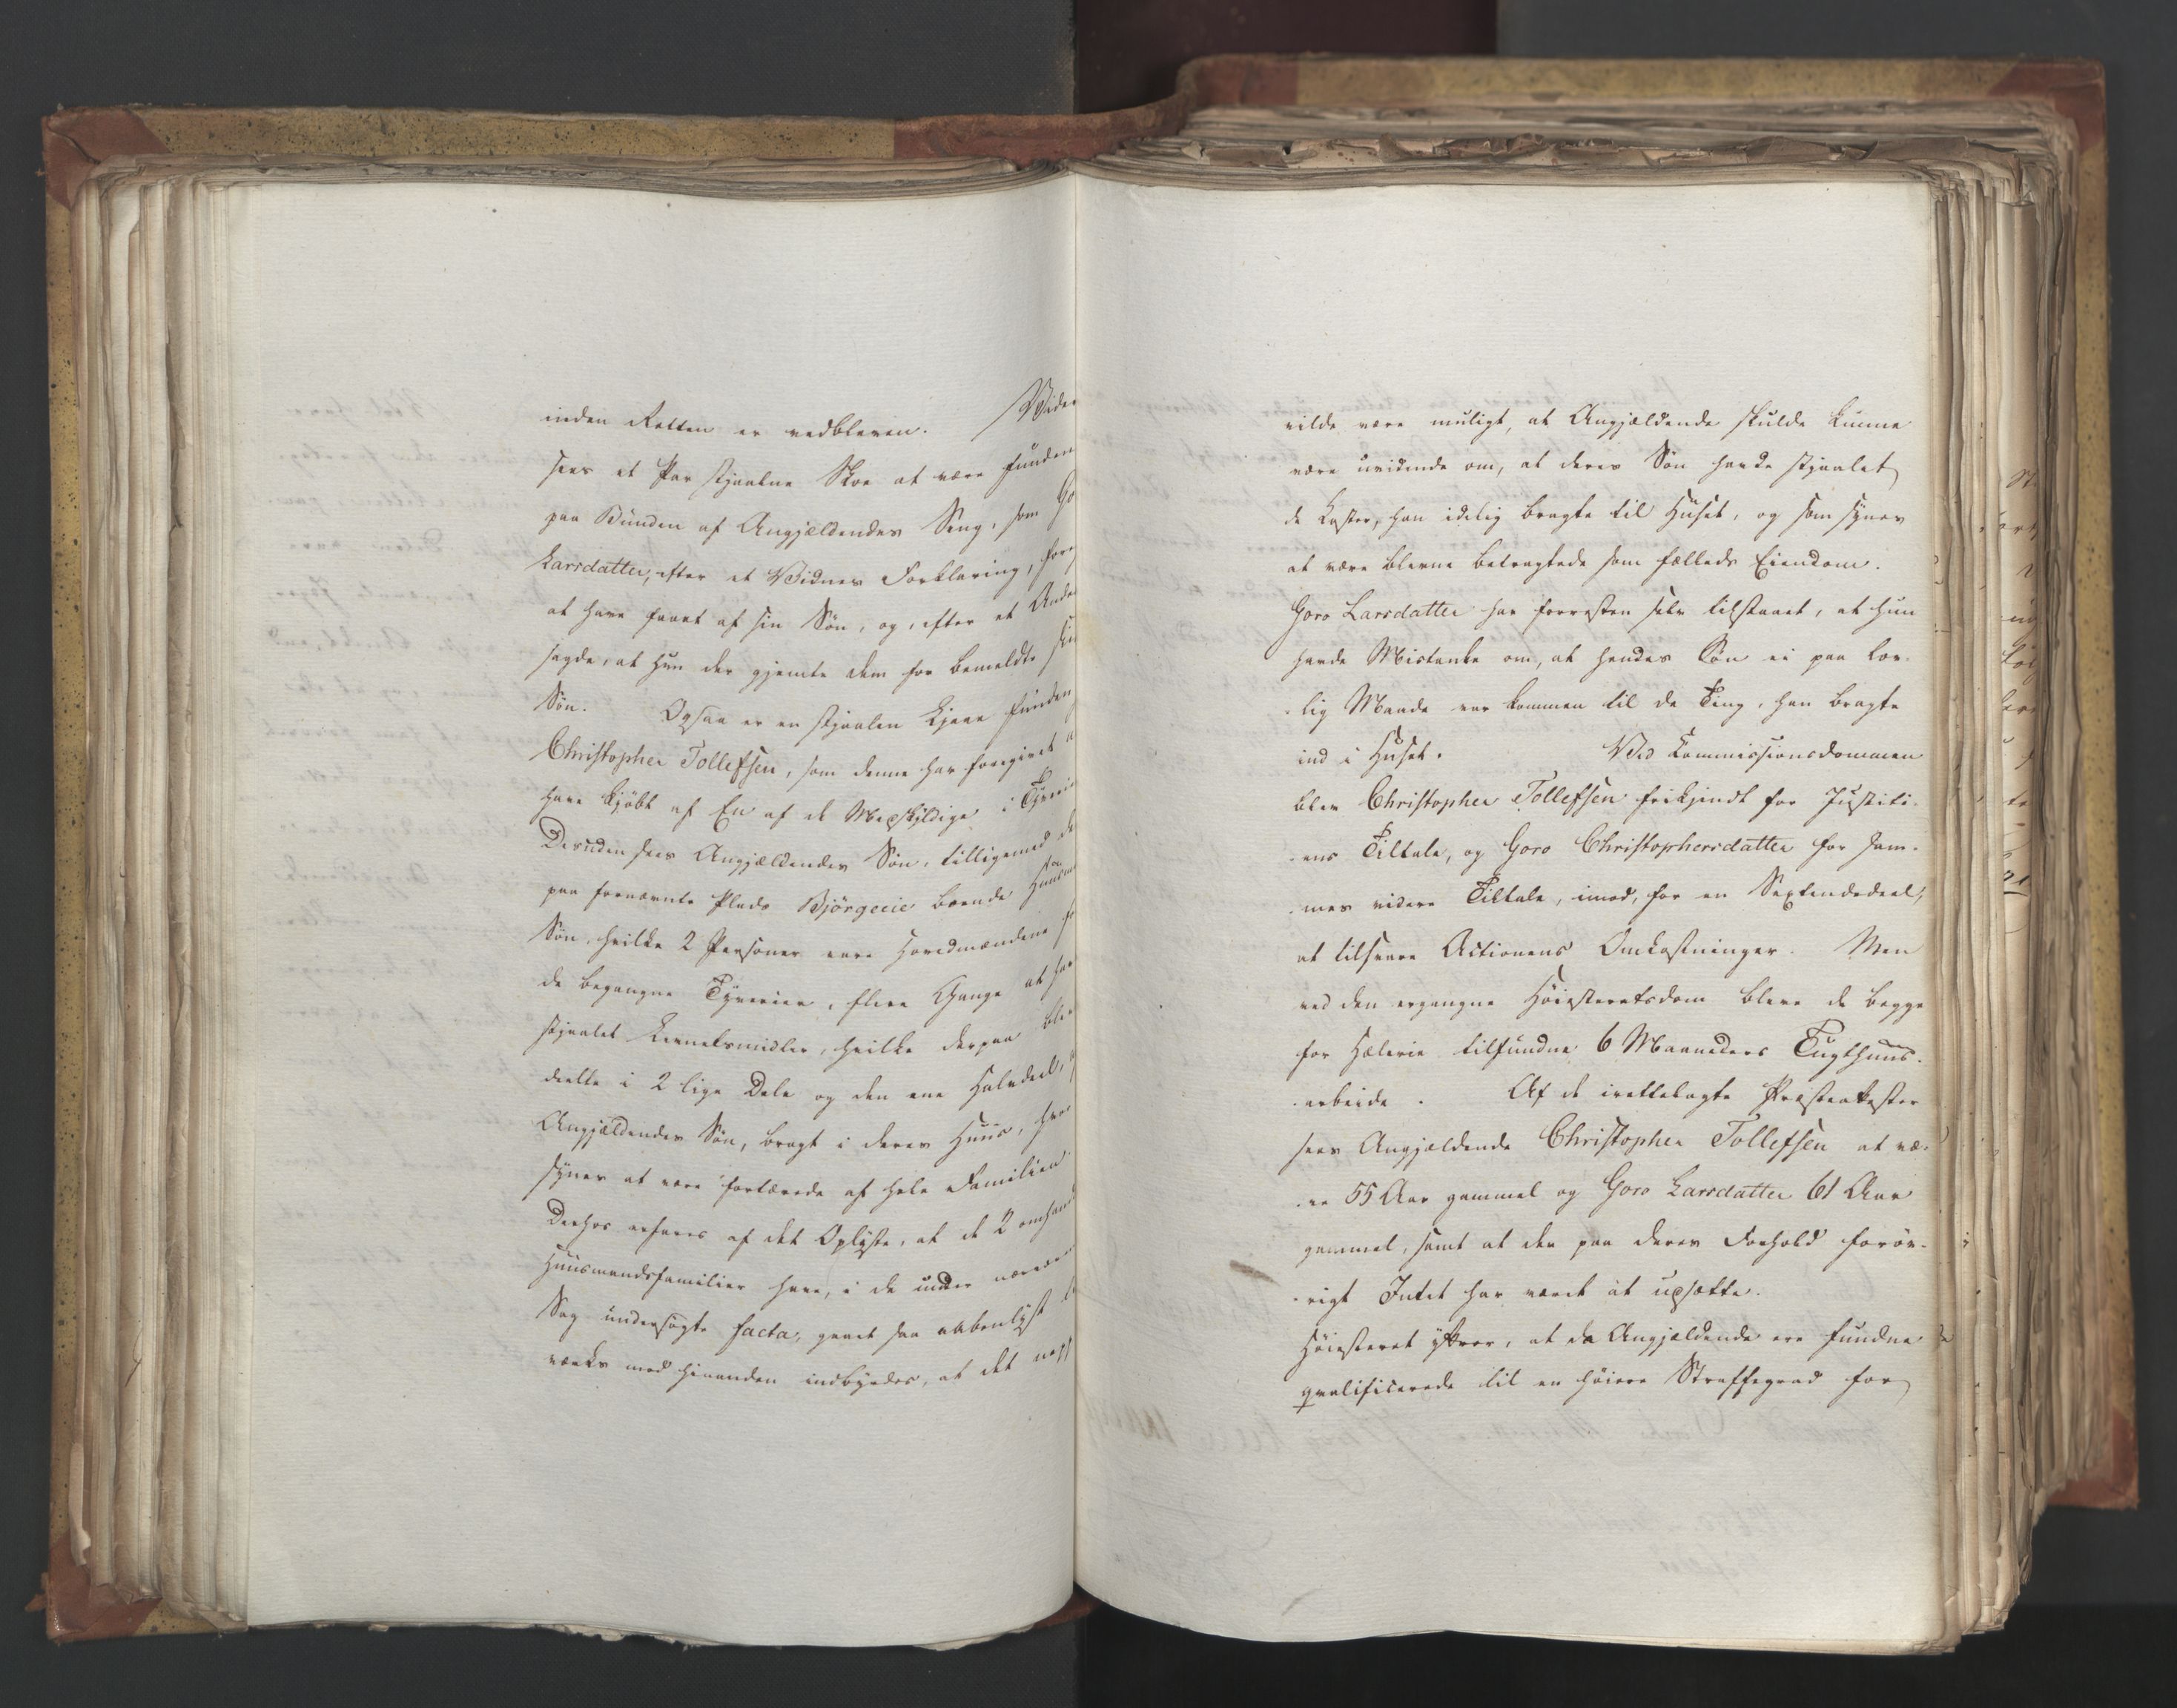 inden Retten er vedbleven. Vider
sees et Par stjaalne Skoe at være funden
paa Bunden af Angjældendes Seng, som Go
Larsdatter, efter et Vidnes Forklaring, fore
at have faaet af sin Søn, og, efter et Ande
sagde, at hun der gjemte dem for bemeldte sin
Søn. Ogsaa er en stjaalen funden
Christopher Tollefsen, som denne har foregivet a
have kjøbt af En af de Medskyldige i Tyveri
Desuden sees Angjældendes Søn, tilligemed de
paa fornævnte Plads Bjørgeeie boende Huusm
Søn, hvilke 2 Personer vare Hovedmændene f
de begangne Tyverier, flere Gange at hav
stjaalet Levnetsmidler, hvilke derpaa ble
deelte i 2 lige Dele og den ene Halvdeel, a
Angjældendes Søn, bragt i deres Huus, hvor
synes at være fortærede af hele Familien
Derhos erfares af det Oplyste, at de 2 omhand
Huusmandsfamilier have, i de under nærvær
Sag undersøgte facta, gaaet saa aabenlyst
værks med hinanden indbyrdes, at det nepp
vilde være muligt, at Angjældende skulde kunne
være uvidende om, at deres Søn havde stjaalet
de Koster, han idelig bragte til Huset, og som synes
at være blevne betragtede som fælleds Eiendom.
Goro Larsdatter har forresten selv tilstaaet, at hun
havde Mistanke om, at hendes Søn ei paa lov-
lig Maade var kommen til de Ting, han bragte
ind i Huset. Ved Commissionsdommen
blev Christopher Tollefsen frikjendt for Justiti-
ens Tiltale, og Goro Christophersdatter for sam-
mes videre Tiltale, imod, for en Sextendedeel,
at tilsvare Actionens Omkostninger. Men
ved den ergangne Høiesteretsdom bleve de begge
for Hæleri tilfundne 6 Maaneders Tugthuus-
arbeide. Af de irettelagte Præsteattester
sees Angjældende Christopher Tollefsen at væ-
re 55 Aar gammel og Goro Larsdatter 61 Aar
gammel, samt at der paa deres Forhold forøv-
rigt Intet har været at udsætte.
Høiesteret yttrer, at da Angjældende ere fundne
qvalificerede til en høiere Straffegrad for